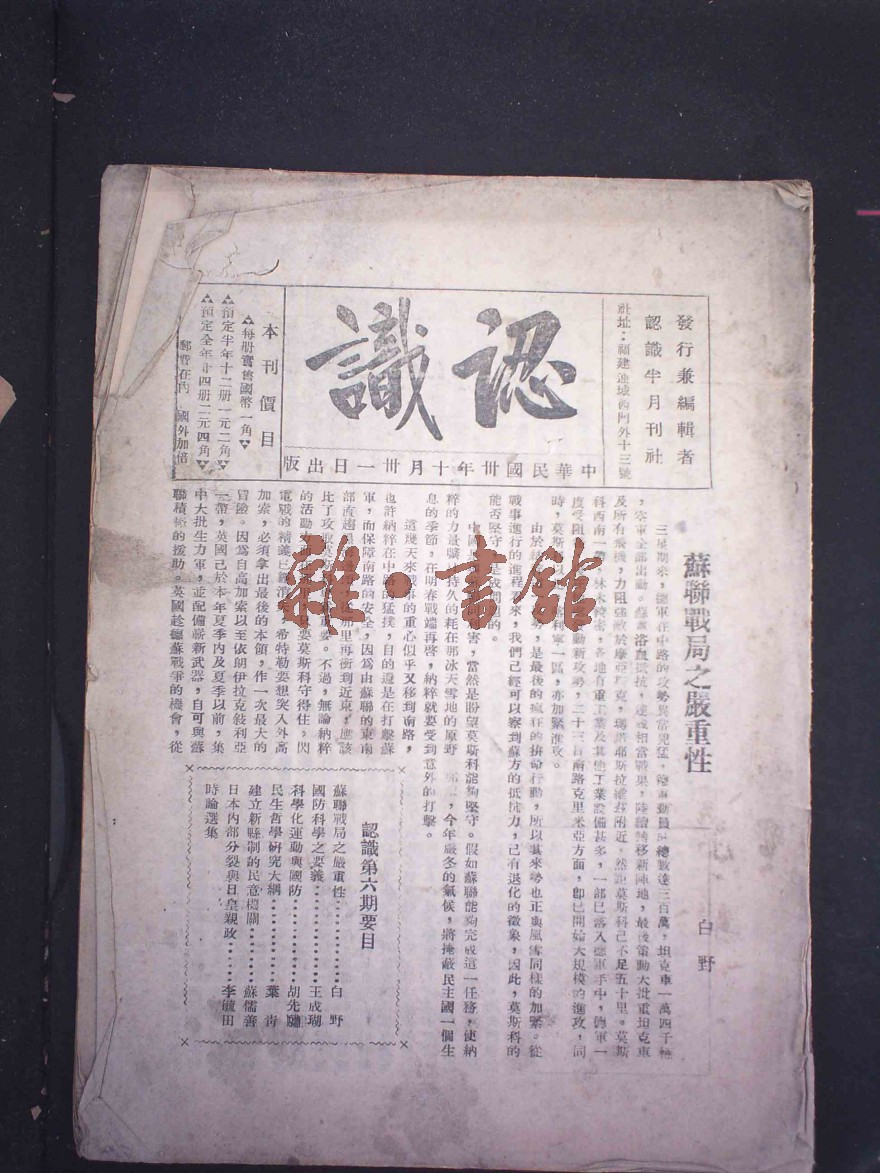 發行兼編輯者
認識半月刊社
社址：福建連城西門外十三號
認識
中華民國卅年十月卅一日出版
本刊價目
每册實售國幣一角
預定半年十二册一元二角
預定全年廿四册二元四角
郵費在內 國外加倍
蘇聯戰局之嚴重性
白野
三星期來，德軍在中路的攻勢異常兇猛，德軍動員總數達三百萬，坦克車一萬四千輛
，空軍全部出動。蘇軍浴血抵抗，達成相當戰果，陸續轉移新陣地，最後電動大批重坦克車
及所有飛機，力阻強敵於摩亞斯克，瑪洛耶斯拉維茲附近。然距莫斯科已不足五十里。莫斯
科西南一帶，各地有重工業及其他工業設備甚多，一部已落入德軍手中，德軍一
度受阻，動新攻勢，二十三日南路克里米亞方面，即已開始大規模的進攻，同
時，莫斯利寧一區，亦加緊進攻。
由於，是最後的瘋狂的拚命行動，所以其來勢也正與風雪同樣的加緊。從
戰事進行的進程看來，我們已經可以察到蘇方的抵抗力，已有退化的徵象，因此，莫斯科的
能否堅守，是我問題的。
中國害，當然是盼望莫斯科能夠堅守。假如蘇聯能夠完成這一任務，使納
粹的力量曠日持久的耗在那冰天雪地的原野，今年嚴冬的氣候，將掩蔽民主國一個生
息的季節，在明春戰端再啓，納粹就要受到意外的打擊。
這幾天來戰事的重心似乎又移到南路，
也許納粹在中路的猛撲，目的還是在打擊蘇
軍，而保障南路的安全，因為由蘇聯的東南
部直趨那里再衝到近東，應該
比了攻取莫斯重要。不過，無論納粹
的活動只要莫斯科守得住，閃
電戰的精義已經消失，希特勒要想突入外高
加索，必須拿出最後的本領，作一次最大的
冒險。因為自高加索以至依朗伊拉克敍利亞
一帶，英國已於本年夏季內及夏季以前，集
中大批生力軍，並配備嶄新武器，自可與蘇
聯積極的援助。英國趁德蘇戰爭的機會，從
認識第六期要目
蘇聯戰局之嚴重性……白野
國防科學之要義……王成瑚
科學化運動與國防……胡先驌
民生哲學研究大綱……葉青
建立新縣制的民意機關……蘇儒善
日本內部分裂與日皇親政……李毓田
時論選集
雜·書館